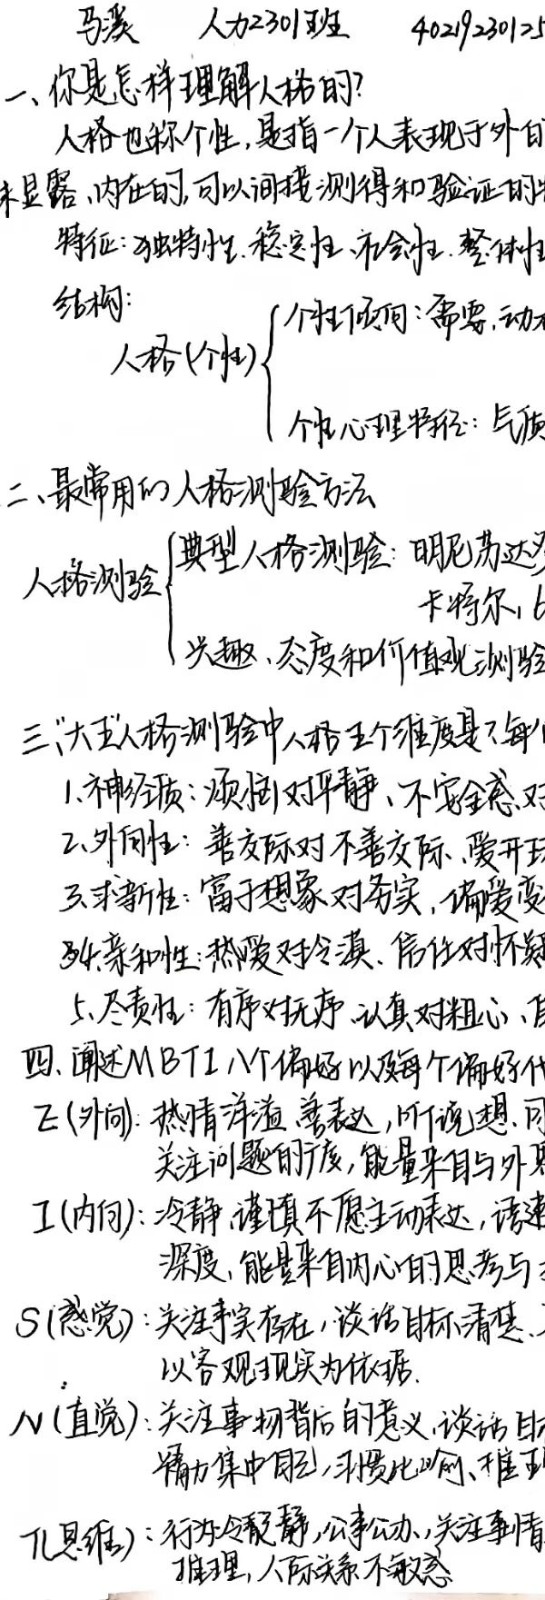 马溪 人力2301班 40219230125
一、你是怎样理解人格的?
人格也称个性,是指一个人表现于外的
未显露、内在的,可以间接测得和验证的特
特征:独特性、稳定性、社会性、整体性
结构:
人格(个性)
个性倾向:需要、动
个性心理特征:气质
二、最常用的人格测验方法
人格测验
典型人格测验:明尼苏达多
卡特尔16
兴趣、态度和价值观测验
三、"大五"人格测验中人格五个维度是?每个
1.神经质:烦恼对平静、不安全感对
2.外向性:善交际对不善交际、爱开玩
3.求新性:富于想象对务实、偏爱变
4.亲和性:热暖对冷漠、信任对怀疑
5.尽责性:有序对无序、认真对粗心、自
四、阐述MBTI八个偏好以及每个偏好代
E(外向):热情洋溢、善表达,听说想、同
关注问题的广度,能量来自与外界
I(内向):冷静、谨慎不愿主动表达,语速
深度,能量来自内心的思考与
S(感觉):关注事实存在,谈话目标清楚、
以客观现实为依据.
N(直觉):关注事物背后的意义、谈话目标
精力集中自己,习惯比喻、推理
T(思维):行为冷静,公事公办,关注事情
推理,人际关系不敏感